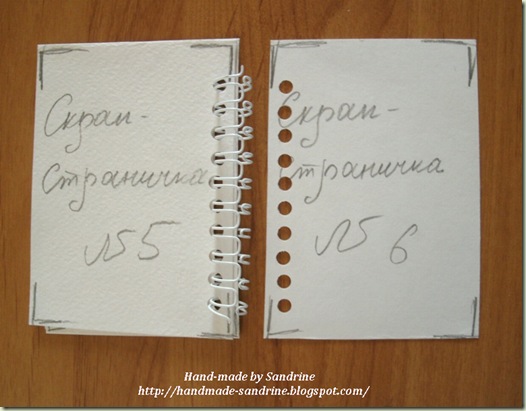 Скрап-
Страничка
№5
Скрап-
страничка
№ 6
Hand-made by Sandrine
http://handmade-sandrine.blogspot.com/